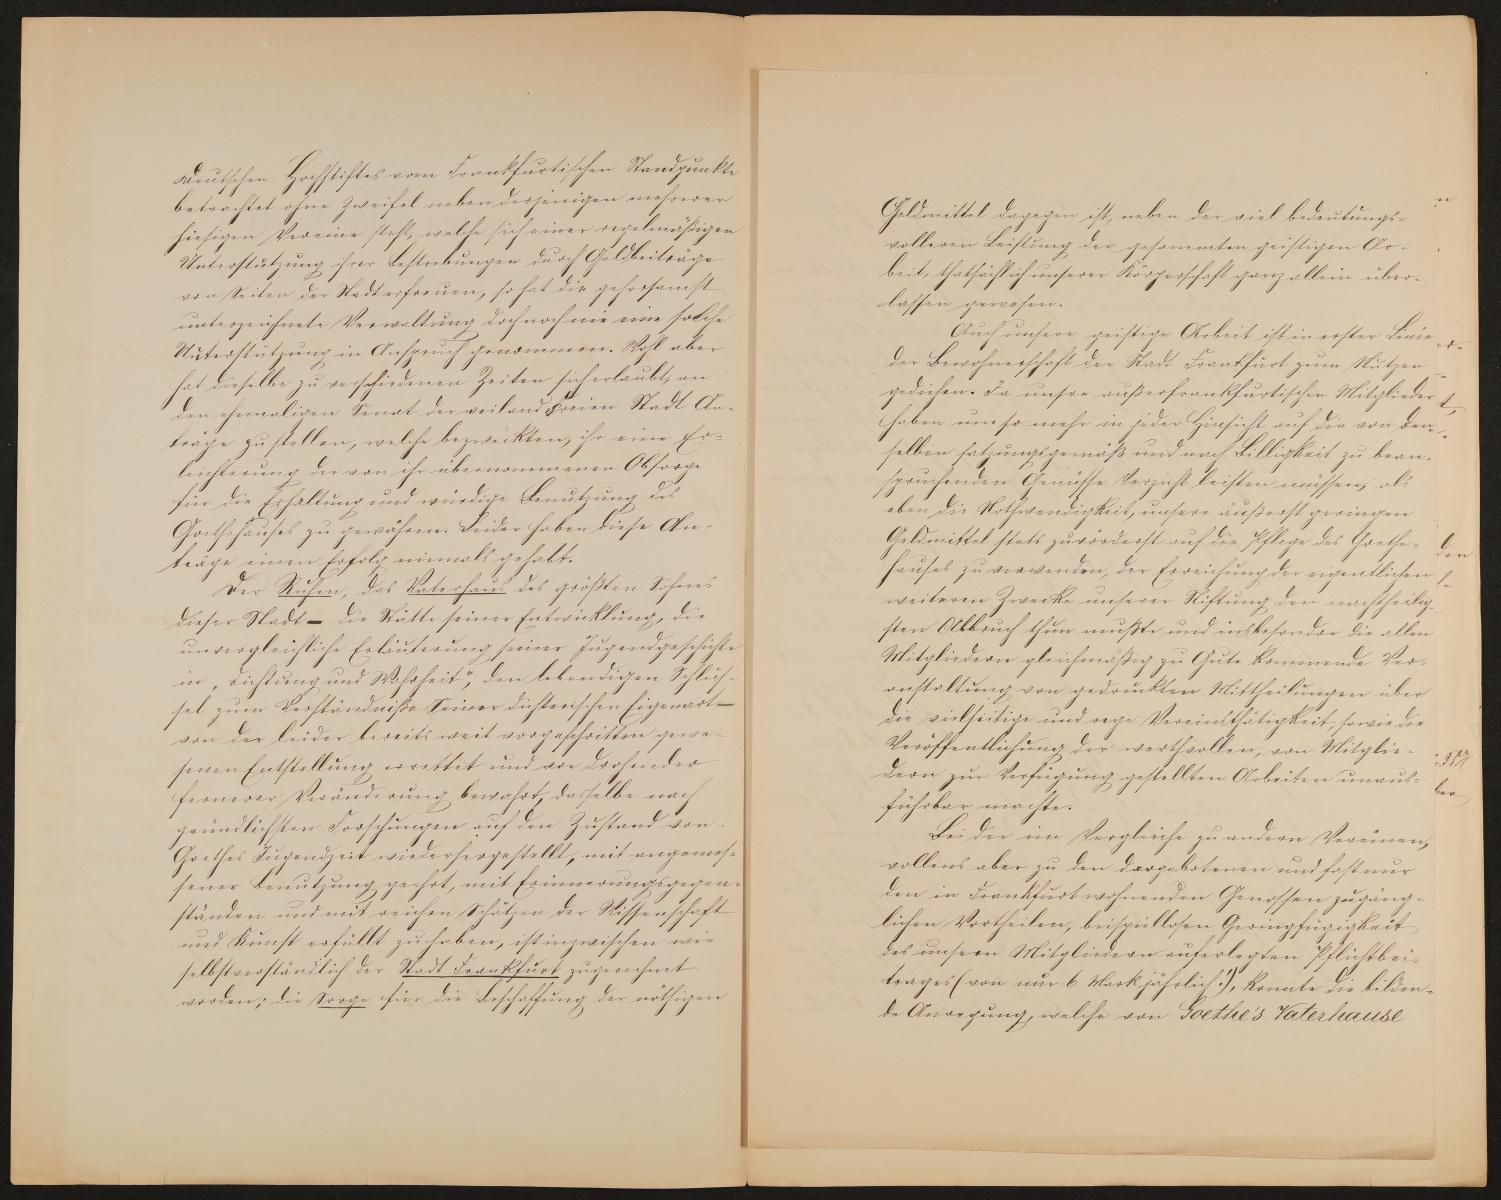 deutschen Hochstiftes vom Frankfurtischen Standpunkte
betrachtet ohne Zweifel neben derjenigen mehrerer
hiesigen Vereine steht, welche sich einer regelmäßigen
Unterstützung ihrer Bestrebungen durch Geldbeiträge
von Seiten der Stadt erfreuen, so hat die gehorsamst
unterzeichnete Verwaltung doch noch nie eine solche
Unterstützung in Anspruch genommen. Wohl aber
hat dieselbe zu verschiedenen Zeiten sich erlaubt, an
den ehemaligen Senat der weiland Freien Stadt An-
träge zu stellen, welche bezweckten, ihr eine Er-
leichterung der von ihr übernommenen Obsorge
für die Erhaltung und würdige Benutzung des
Goethehauses zu gewähren. Leider haben diese An-
träge einen Erfolg niemals gehabt.
Der Ruhm, das Vaterhaus des größten Sohnes
dieser Stadt – die Stätte seiner Entwicklung, die
unvergleichliche Erläuterung seiner Jugendgeschichte
in „Dichtung und Wahrheit", den lebendigen Schlüs-
sel zum Verständniße Seiner dichterischen Eigenart –
von der leider bereits weit vorgeschritten gewe-
senen Entstellung errettet und vor drohender
fernerer Veränderung bewahrt, dasselbe nach
gründlichsten Forschungen auf den Zustand von
Goethes Jugendzeit wiederhergestellt, mit angemes-
sener Benutzung geehrt, mit Erinnerungsgegen-
ständen und mit reichen Schätzen der Wissenschaft
und Kunst erfüllt zu haben, ist inzwischen wie
selbstverständlich der Stadt Frankfurt zugerechnet
worden; die Sorge für die Beschaffung der nöthigen
Geldmittel dagegen ist, neben der viel bedeutungs-
volleren Leistung der gesammten geistigen Ar-
beit, thatsächlich unserer Körperschaft ganz allein über-
lassen gewesen.
Auch unsere geistige Arbeit ist in erster Linie
der Bewohnerschaft der Stadt Frankfurt zum Nutzen
gediehen. Ja unsre außerfrankfurtischen Mitglieder
haben um so mehr in jeder Hinsicht auf die von den-
selben satzungsgemäß und nach Billigkeit zu bean-
spruchenden Genüsse Verzicht leisten müssen, als
eben die Nothwendigkeit, unsere äußerst geringen
Geldmittel stets zuvörderst auf die Pflege des Goethe-
hauses zu verwenden, der Erreichung der eigentlichen
weiteren Zwecke unserer Stiftung den nachtheilig-
sten Abbruch thun mußte und insbesondre die allen
Mitgliedern gleichmäßig zu Gute kommende Ver-
anstaltung von gedruckten Mittheilungen über
die vielseitige und rege Vereinsthätigkeit, sowie die
Veröffentlichung der werthvollen, von Mitglie-
dern zur Verfügung gestellten Arbeiten unaus-
führbar machte.
Bei der im Vergleiche zu andern Vereinen,
vollends aber zu den dargebotenen und fast nur
den in Frankfurt wohnenden Genossen zugäng-
lichen Vortheilen, beispiellosen Geringfügigkeit
des unsern Mitgliedern auferlegten Pflichtbei-
trages (von nur 6 Mark jährlich!), konnte die bilden-
de Anregung, welche von Goethe's Vaterhause